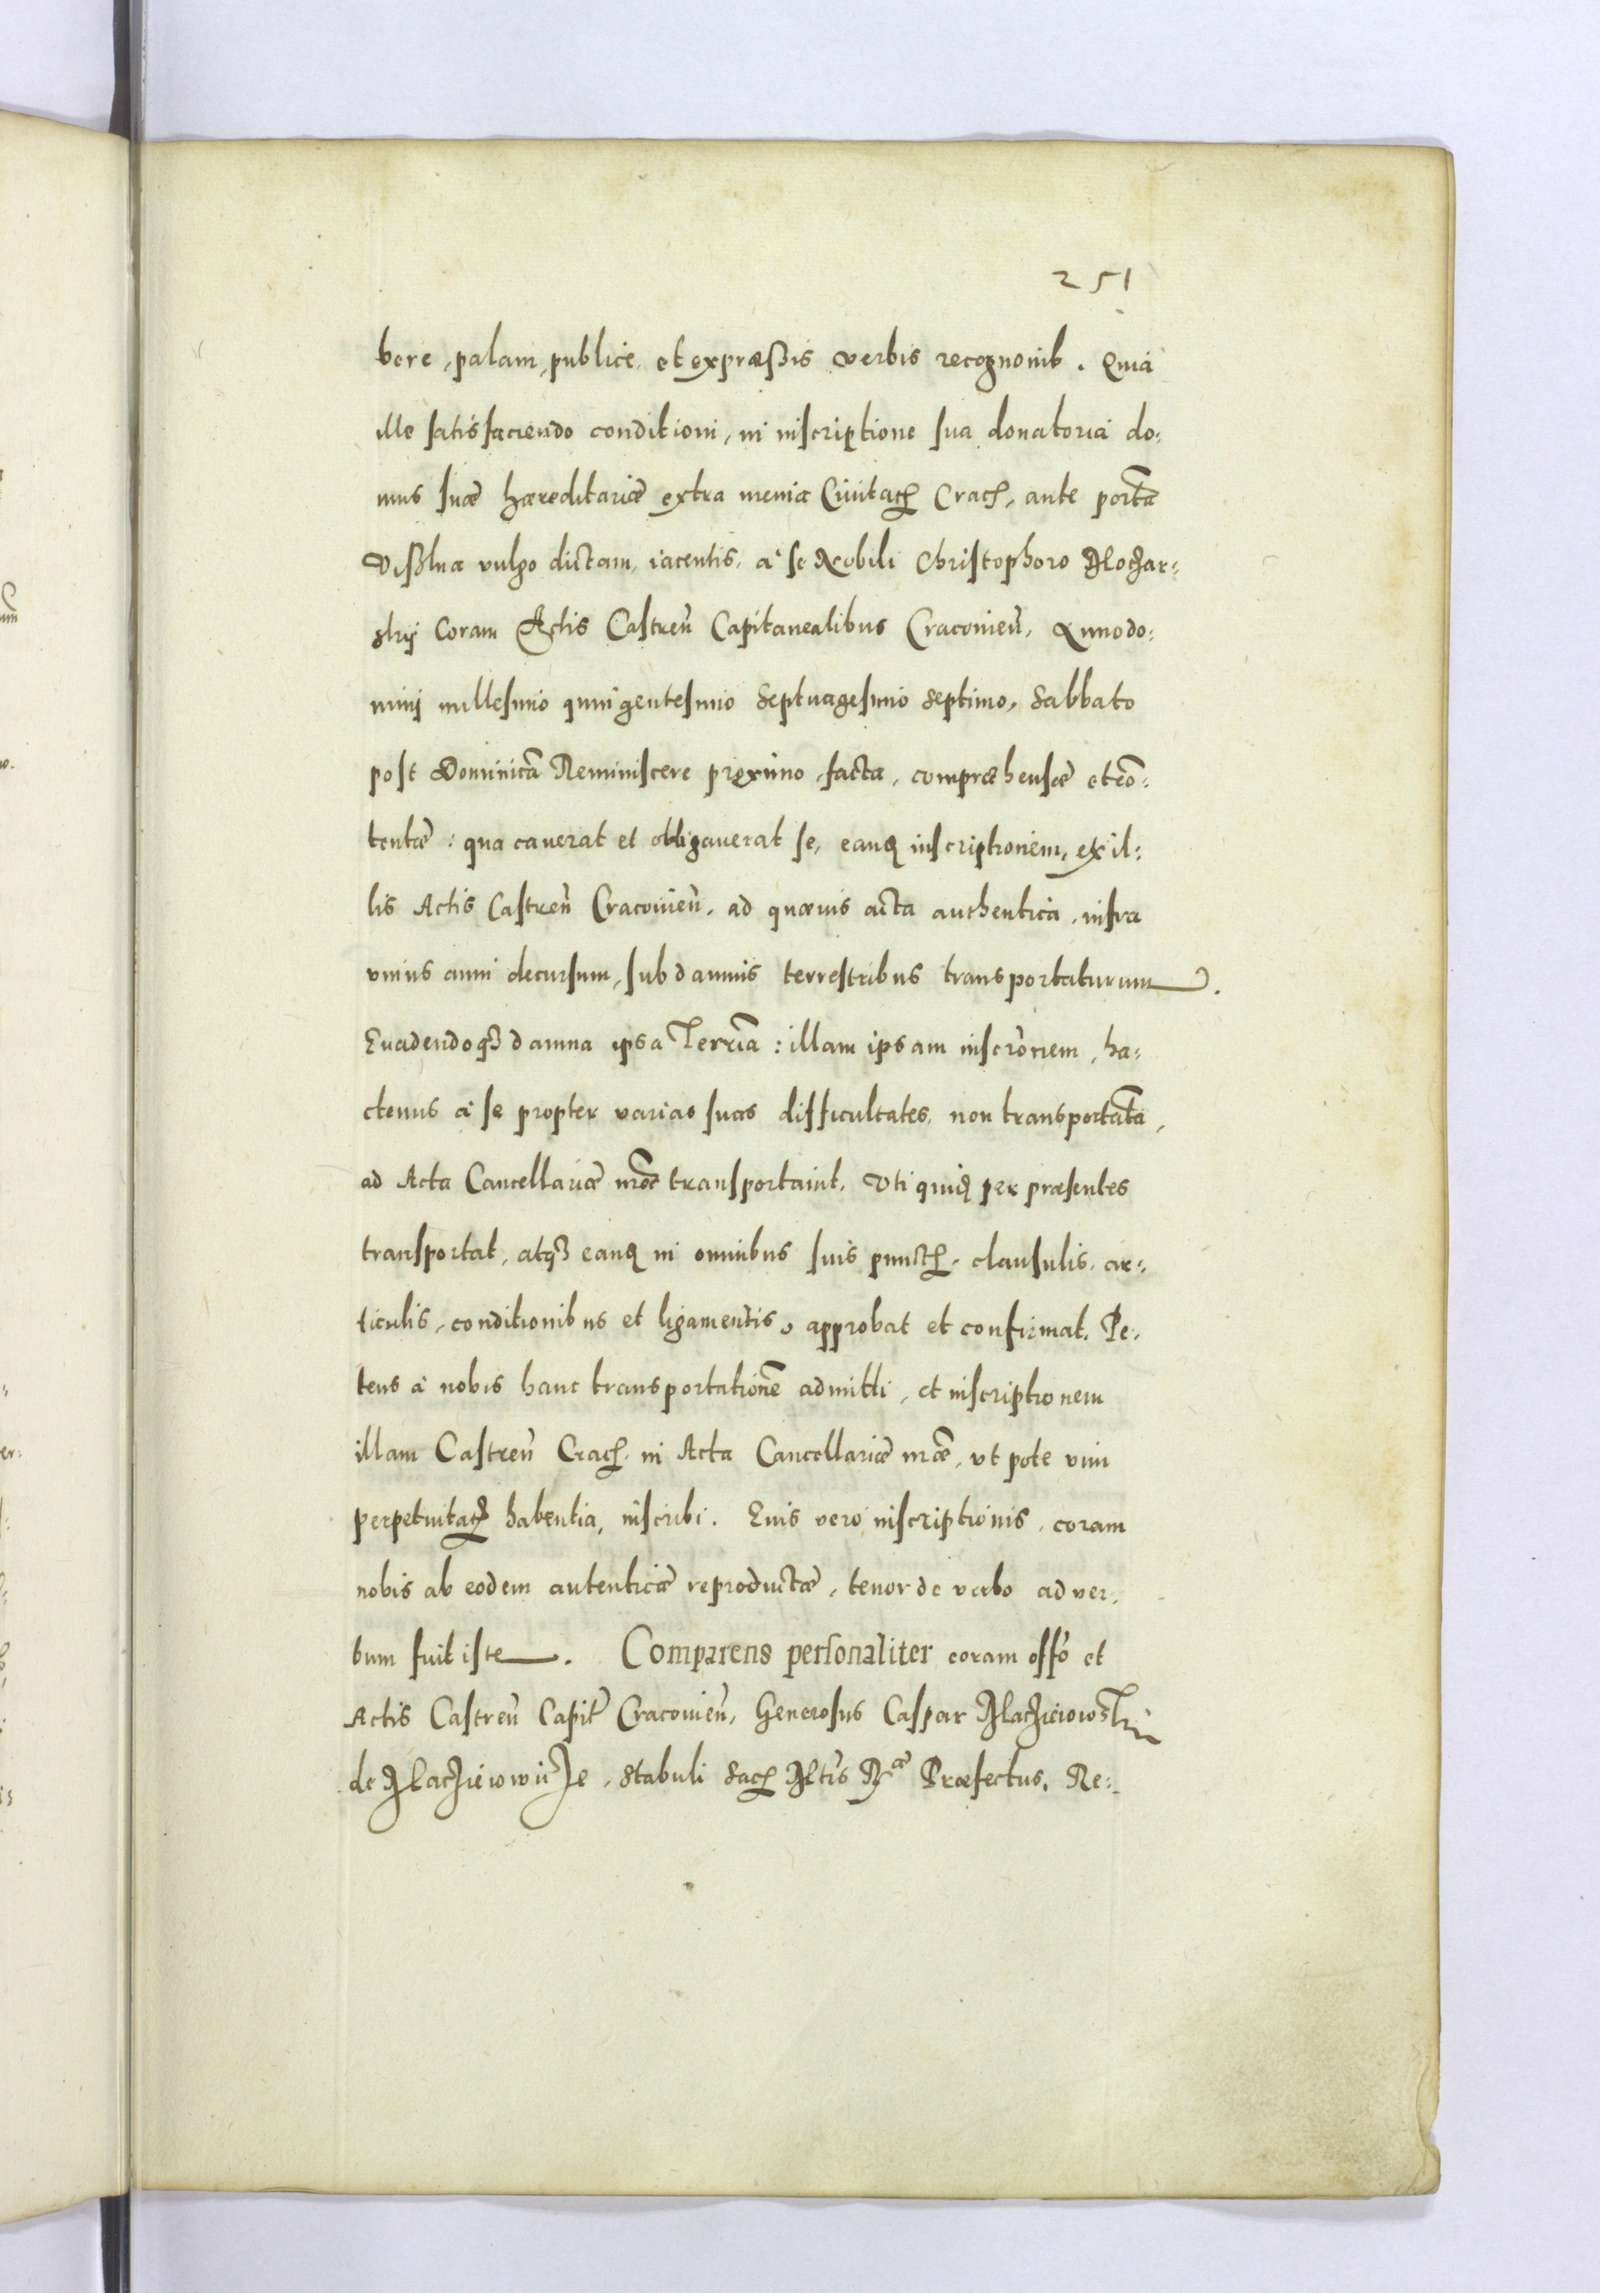 251
bere, palam, publice, et expræssis verbis recognovit. Quia
ille satisfaciendo conditioni, in inscriptione sua donatoria do:
mus suæ hæreditariæ extra menia Civitatis Crac, ante portã
Vislna vulgo dictam, iacentis, à se Nobili Christophoro
coram Actis Castreñ Capitanealibus Cracovieñ, Anno do:
mini millesimo quingentesimo Septuagesimo septimo, Sabbato
post Dominicã Reminiscere proximo, facta, compræhensæ et cõ:
tentæ: qua caverat et obligaverat se, eanq inscriptionem, ex il:
lis Actis Castreñ Cracovieñ, ad quævis acta authentica, infra
unius anni decursum, sub damnis terrestribus transportaturum.
Evadendoq3 damna ipsa Terrīa: illam ipsam inscrōnem, ha:
ctenus à se propter varias suas difficultates, non transportatã,
ad Acta Cancellariæ nræ transportavit. Uti quidq per præsentes
transportat, atq3 eanq in omnibus suis punctis, clausulis, ar:
ticulis, conditionibus et ligamentis, approbat et confirmat. Pe:
tens à nobis hanc transportationẽ admitti, et inscriptionem
illam Castreñ Crac, in Acta Cancellariæ nræ, ut pote vim
perpetuitatis habentia, inscribi. Cuius vero inscriptionis, coram
nobis ab eodem autenticæ reproductæ, tenor de verbo ad ver:
bum fuit iste. Comparens personaliter coram offō et
Actis Castreñ Capit Cracovieñ, Generosus Caspar Macieiowski
de Macieiowicze, Stabuli Sac Mtis R Præfectus, Re: